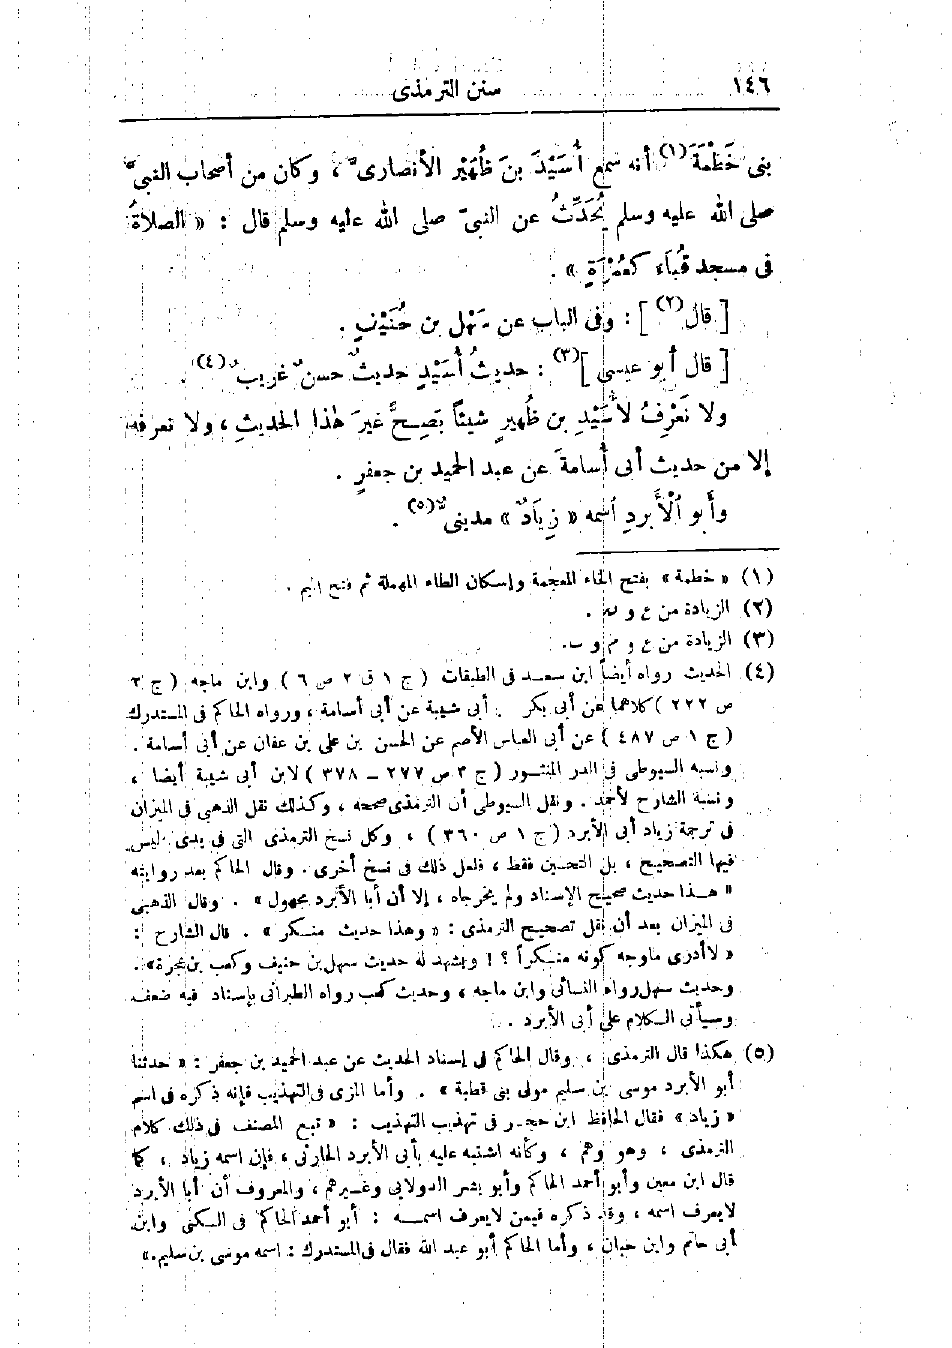 ١٤٦
سنن الترمذى
بنى خَطْمَةَ (١) أنه سمع أُسَيْدَ بنَ ظُهَيْر الأنصارىَّ ، وكان من أصحاب النبىِّ
صلى الله عليه وسلم يُحَدِّثُ عن النبىّ صلى الله عليه وسلم قال : « الصلاةُ
فى مسجد قُبَاء كعُمْرَةٍ » .
[ قال (٢) ] : وفى الباب عن سَهْل بن حُنَيْفٍ .
[ قال أبو عيسى ] (٣) : حديثُ أُسَيْدٍ حديثٌ حسنٌ غريبٌ (٤) .
ولا نَعْرِفُ لأُسَيْدِ بن ظُهيرٍ شيئاً يَصِحُّ غيرَ هذا الحديثِ ، ولا نعرفه
إلا من حديث أبى أُسامةَ عن عبد الحميد بن جعفرٍ .
وأَبو الْأَبردِ اسمه « زِيَادٌ » مدينىٌّ (٥) .
(١) « خطمة » بفتح الخاء المعجمة وإسكان الطاء المهملة ثم فتح الميم .
(٢) الزيادة من ع و
(٣) الزيادة من ع و م و ب .
(٤) الحديث رواه أيضاً ابن سعد فى الطبقات ( ج ١ ق ٢ ص ٦ ) وابن ماجه ( ج ٢
ص ٢٢٢ ) كلاهما عن أبى بكر . أبى شيبة عن أبى أسامة ، ورواه الحاكم فى المستدرك
( ج ١ ص ٤٨٧ ) عن أبى العباس الأصم عن الحسن بن على بن عفان عن أبى أسامة .
ونسبه السيوطى فى الدر المنثور ( ج ٣ ص ٢٧٧ – ٣٧٨ ) لابن أبى شيبة أيضا ،
ونسبة الشارح لأحمد . ونقل السيوطى أن الترمذى صححه ، وكذلك نقل الذهبى فى الميزان
فى ترجمة زياد أبى الأبرد ( ج ١ ص ٣٦٠ ) ، وكل نسخ الترمذى التى فى يدى ليس
فيها التصحيح ، بل التحسين فقط ، فلعل ذلك فى نسخ أخرى . وقال الحاكم بعد روايته
« هذا حديث صحيح الإسناد ولم يخرجاه ، إلا أن أبا الأبرد مجهول » . وقال الذهبى
فى الميزان بعد أن نقل تصحيح الترمذى : « وهذا حديث منكر » . قال الشارح :
« لا أدرى ما وجه كونه منكراً ؟ ! ويشهد له حديث سهل بن حنيف وكعب بن عجرة » .
وحديث سهل رواه النسائى وابن ماجه ، وحديث كعب رواه الطبرانى بإسناد فيه ضعف
وسيأتى الكلام على أبى الأبرد .
(٥) هكذا قال الترمذى ، وقال الحاكم فى إسناد الحديث عن عبد الحميد بن جعفر : « حدثنا
أبو الأبرد موسى بن سليم مولى بنى قطبة » . وأما المزى فى التهذيب فإنه ذكره فى اسم
« زياد » فقال الحافظ ابن حجر فى تهذيب التهذيب : « تبع المصنف فى ذلك كلام
الترمذى ، وهو وهم ، وكأنه اشتبه عليه بأبى الأبرد الحارثى ، فإن اسمه زياد ، كما
قال ابن معين وأبو أحمد الحاكم وأبو بشر الدولابى وغيرهم ، والمعروف أن أبا الأبرد
لا يعرف اسمه ، وقد ذكره فيمن لا يعرف اسمه : أبو أحمد الحاكم فى الكنى وابن
أبى حاتم وابن حبان ، وأما الحاكم أبو عبد الله فقال فى المستدرك : اسمه موسى بن سليم . »